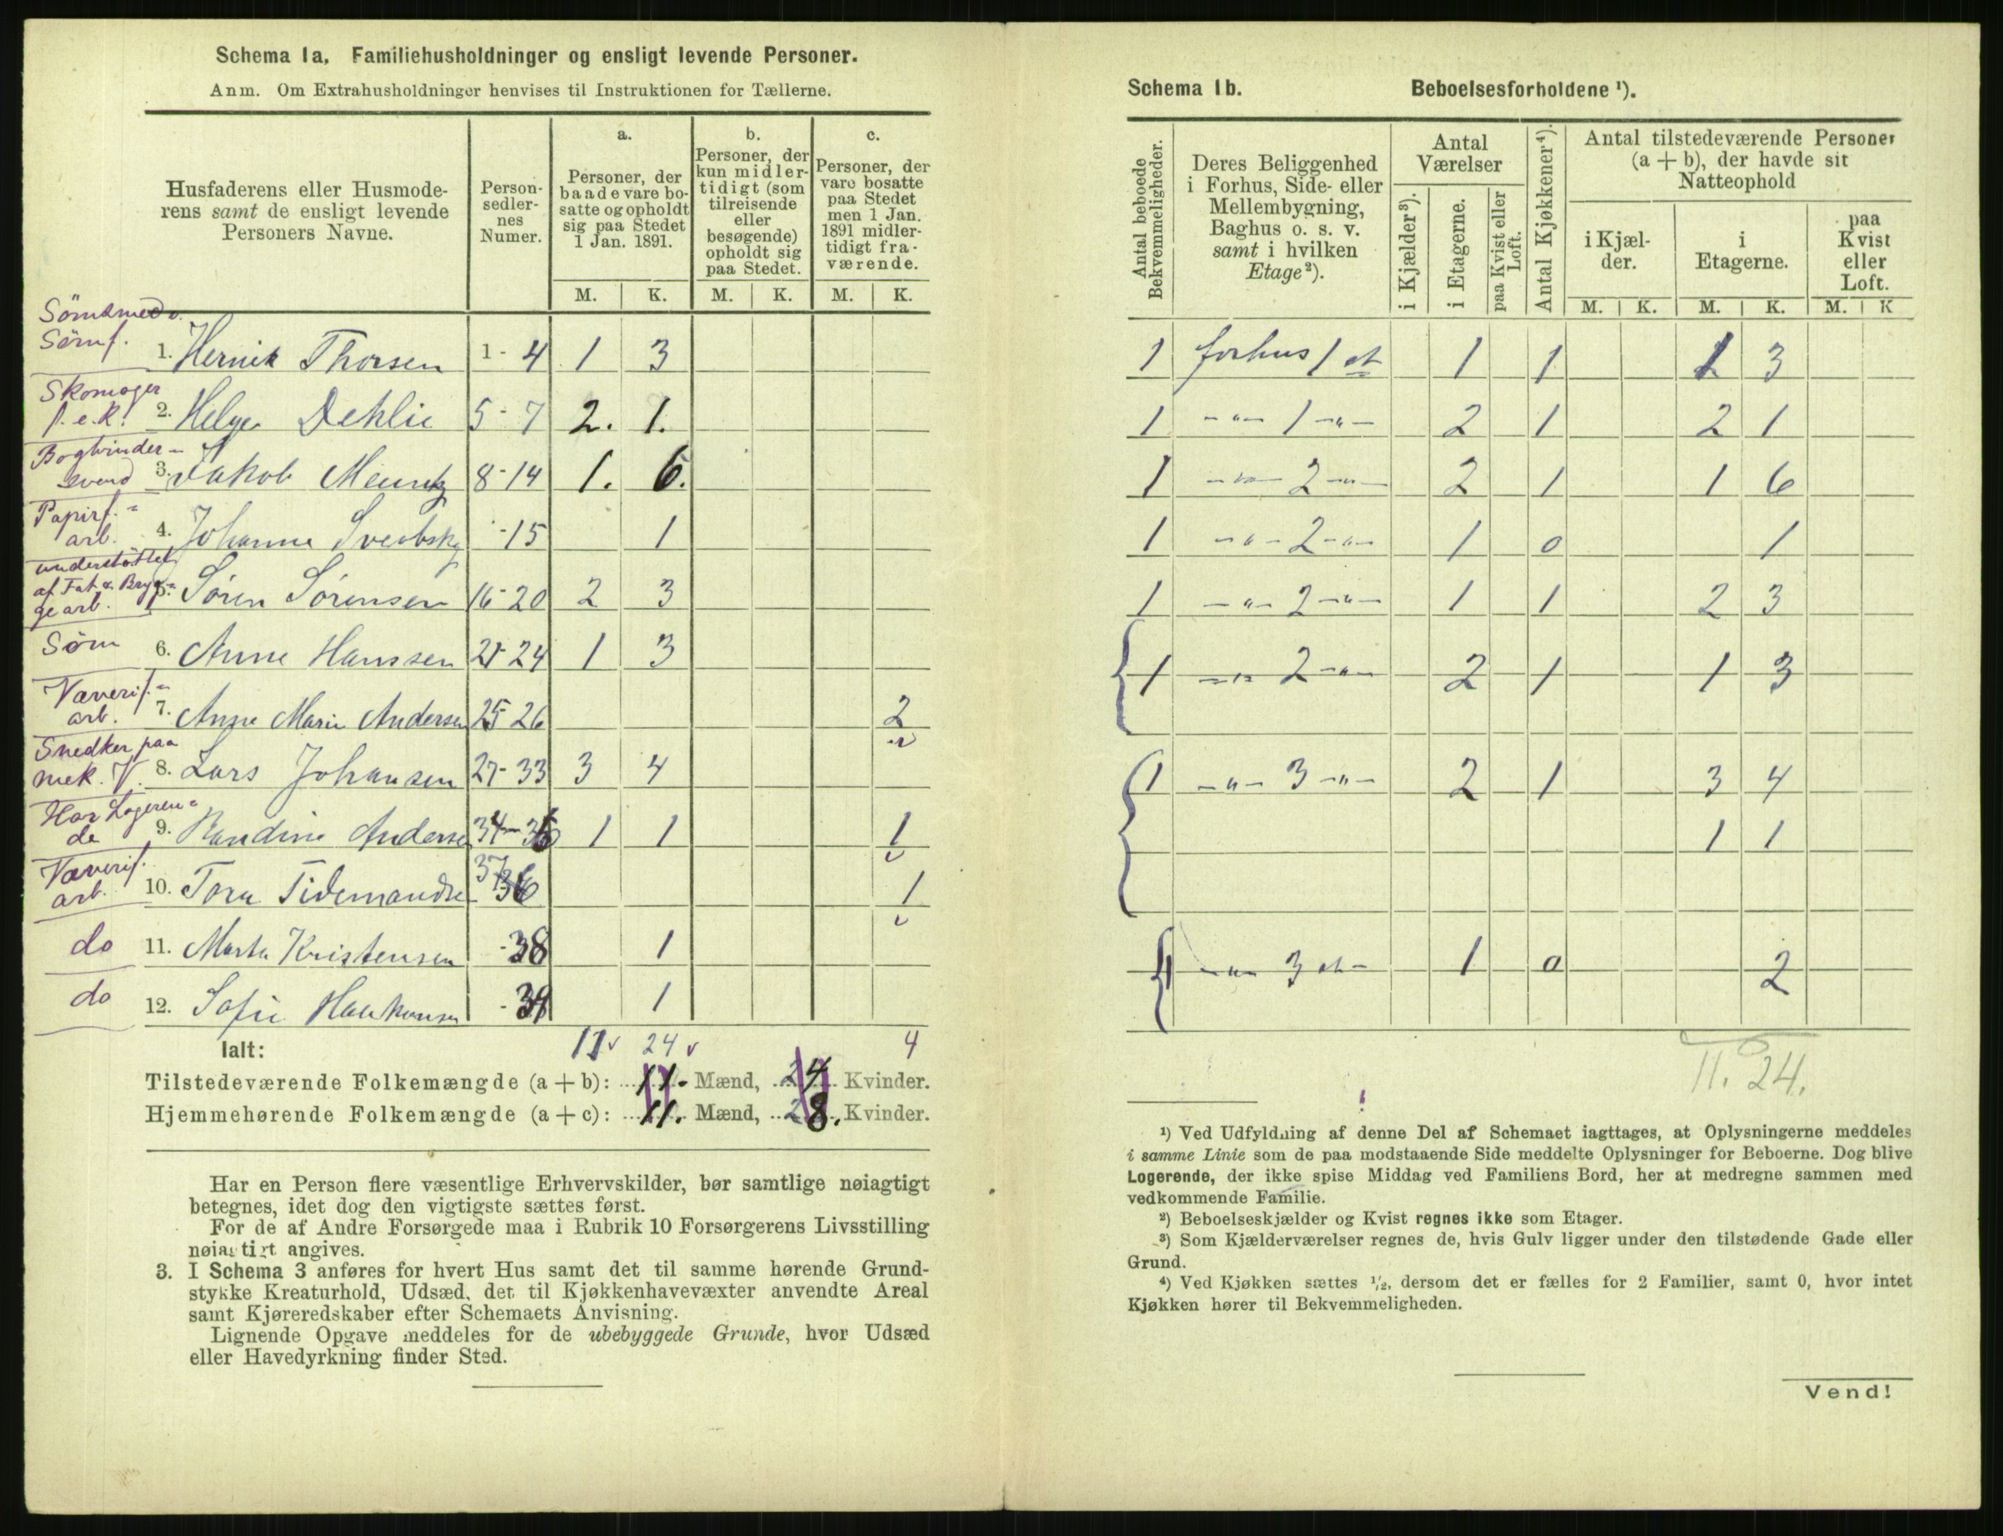 Schema 1a. Familiehusholdninger og ensligt levende Personer.
Anm. Om Extrahusholdninger henvises til Instruktionen for Tællerne.
Husfaderens eller Husmoderens samt de ensligt levende Personers Navne.
Personsedlernes Numer.
a. Personer, der baade vare bosatte og opholdt sig paa Stedet 1 Jan. 1891.
b. Personer, der kun midlertidigt (som tilreisende eller besøgende) opholdt sig paa Stedet.
c. Personer, der vare bosatte paa Stedet men 1 Jan. 1891 midlertidigt fraværende.
M. K. M. K. M. K.
Sömsmed v. Sömf. 1. Hernik Thorsen 1-4 1 3
Skomager f.e.R. 2. Helge Dehlie 5-7 2. 1.
Bogbinder-svend 3. Jakob Meuntz 8-14 1. 6.
Papirf.= arb. 4. Johanne Sverbsky -15 1
understöttet af Fat. & Bryggearb. 5. Søren Sørensen 16-20 2 3
Søm 6. Anne Hanssen 21-24 1 3
Væverif.= arb. 7. Anne Marie Andersen 25 26 2
Snedker paa mek. V. 8. Lars Johansen 27-33 3 4
Har Logeren= de 9. Randine Anderse 34-36 1 1 1
Væverif. arb. 10. Tora Tidemandse 37 36 1
do 11. Marta Kristensen -38 1
do 12. Sofie Haakonsen -39 1
Ialt: 11 v 24 v 4
Tilstedeværende Folkemængde (a + b): 11. Mænd, 24 Kvinder.
Hjemmehørende Folkemængde (a + c): 11. Mænd, 28. Kvinder.
Har en Person flere væsentlige Erhvervskilder, bør samtlige nøiagtigt
betegnes, idet dog den vigtigste sættes først.
For de af Andre Forsørgede maa i Rubrik 10 Forsørgerens Livsstilling
nøiagtigt angives.
3. I Schema 3 anføres for hvert Hus samt det til samme hørende Grund-
stykke Kreaturhold, Udsæd, det til Kjøkkenhavevæxter anvendte Areal
samt Kjøreredskaber efter Schemaets Anvisning.
Lignende Opgave meddeles for de ubebyggede Grunde, hvor Udsæd
eller Havedyrkning finder Sted.
Schema 1b. Beboelsesforholdene ¹).
Antal beboede Bekvemmeligheder.
Deres Beliggenhed i Forhus, Side- eller Mellembygning, Baghus o. s. v. samt i hvilken Etage²).
Antal Værelser
i Kjælder³).
i Etagerne.
paa Kvist eller Loft.
Antal Kjøkkener⁴).
Antal tilstedeværende Personer (a + b), der havde sit Natteophold
i Kjælder.
i Etagerne.
paa Kvist eller Loft.
M. K. M. K. M. K
1 forhus 1 et 1 1 1 3
1 -"- 1 -"- 2 1 2 1
1 -"- 2 -"- 2 1 1 6
1 -"- 2 -"- 1 0 1
1 -"- 2 -"- 1 1 2 3
1 -"- 2 -"- 2 1 1 3
1 -"- 3 -"- 2 1 3 4
1 1
1 -"- 3 et- 1 0 2
11. 24.
¹) Ved Udfyldning af denne Del af Schemaet iagttages, at Oplysningerne meddeles
i samme Linie som de paa modstaaende Side meddelte Oplysninger for Beboerne. Dog blive
Logerende, der ikke spise Middag ved Familiens Bord, her at medregne sammen med
vedkommende Familie.
²) Beboelseskjælder og Kvist regnes ikke som Etager.
³) Som Kjælderværelser regnes de, hvis Gulv ligger under den tilstødende Gade eller
Grund.
⁴) Ved Kjøkken sættes ½, dersom det er fælles for 2 Familier, samt 0, hvor intet
Kjøkken hører til Bekvemmeligheden.
Vend!